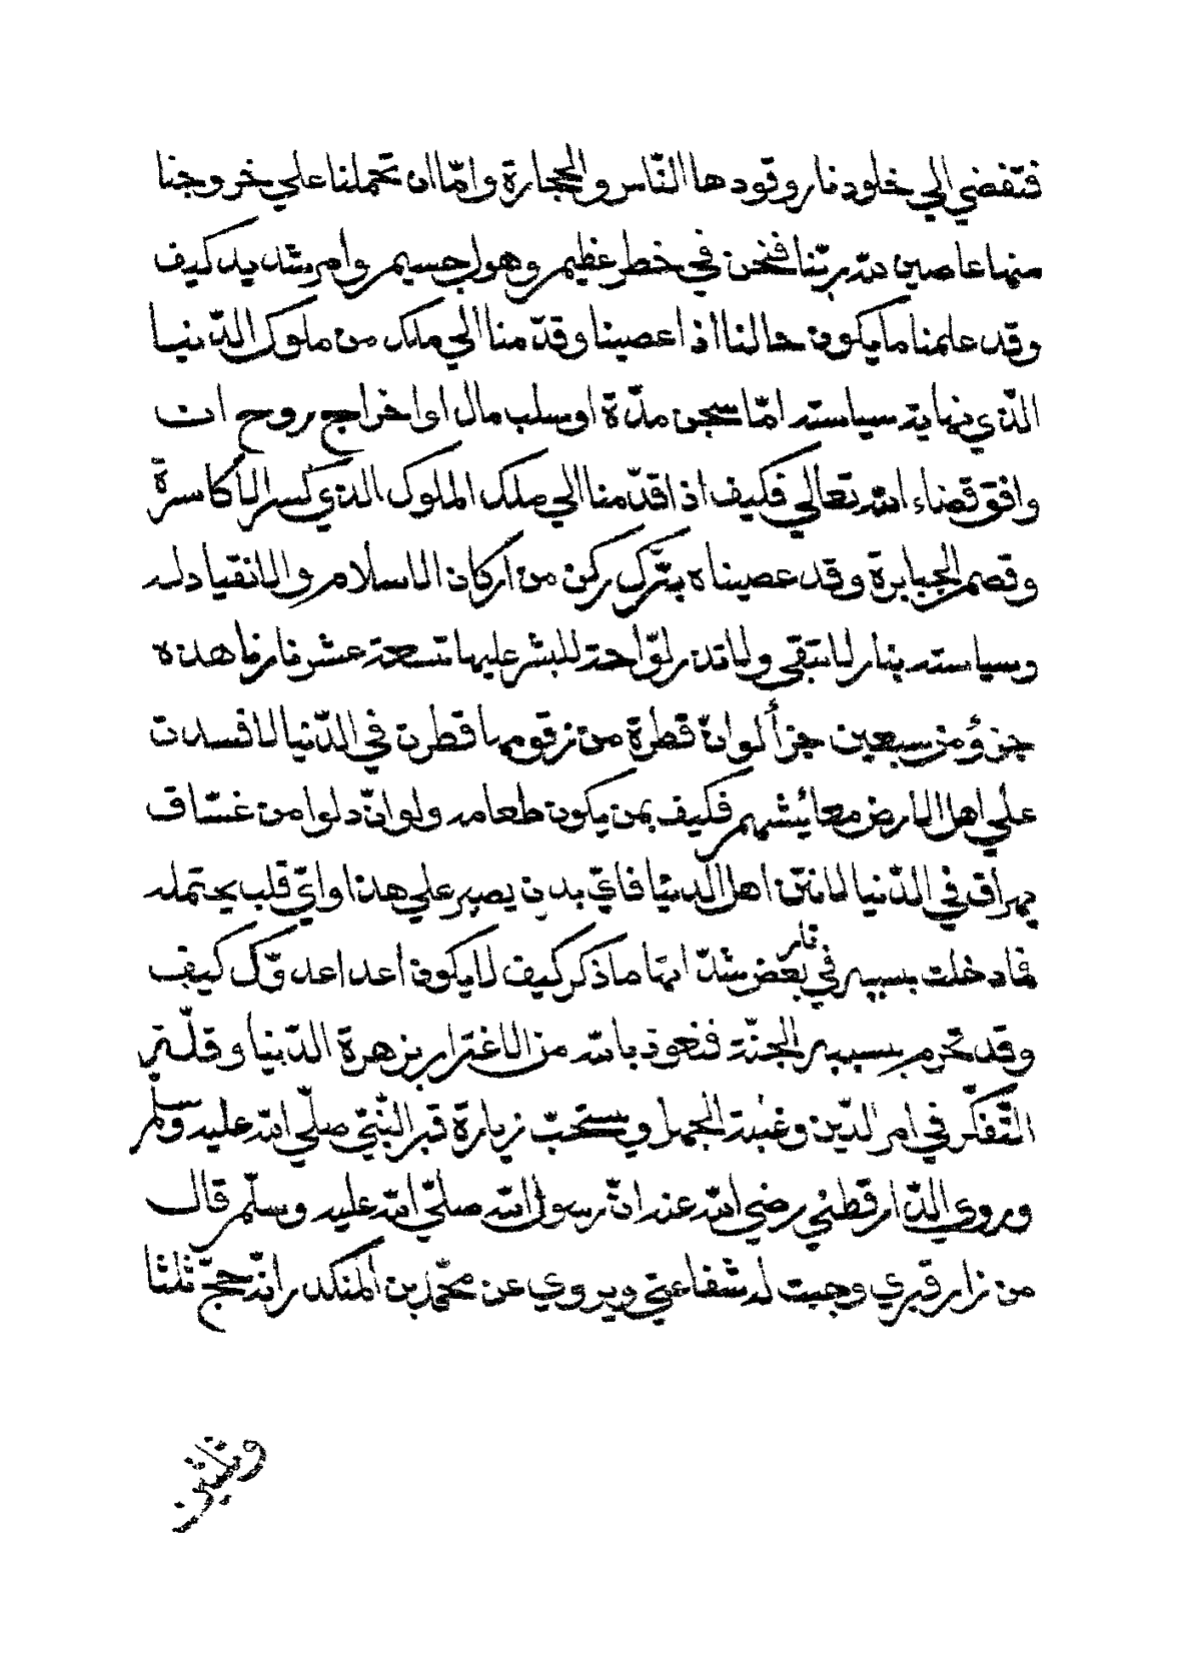 فتفضي الي خلود نار وقودها النّاس والحجارة وامّا ان تحملنا علي خروجنا
منها عاصين لله ربّنا فنحن في خطر عظيم وهول جسيم وامر شديد كيف
وقد علمنا ما يكون حالنا اذا عصينا وقدّمنا الي ملك من ملوك الدّنيا
الّذي نهاية سياسته امّا سجن مدّة او سلب مال او اخراج روح ان
وافق قضاء الله تعالي فكيف اذا قدّمنا الي ملك الملوك الذي كسر الأكاسرة
وقصم الجبابرة وقد عصيناه بترك ركن من اركان الاسلام والانقياد له
وسياسته بنار لا تبقي ولا تذر لوّاحة للبشر عليها تسعة عشر نار نا هذه
جزؤ من سبعين جزأ لو انّ قطرة من زقومها قطرت في الدّنيا لافسدت
علي اهل الارض معائشهم فكيف بمن يكون طعامه ولو انّ دلوا من غسّاق
يهراق في الدّنيا لانتن اهل الدنيا فايّ بدن يصبر علي هذا او ايّ قلب يحتمله
فما دخلت بسببه في نار بعض شدّاتها ما ذكر كيف لا يكون اعدا عدوّك كيف
وقد تحرم بسببه الجنّة فنعوذ بالله من الاغترار بزهرة الدّنيا وقلّة
التّفكّر في امر الدّين وغلبة الجهل ويستحبّ زيارة قبر النّبيّ صلّي الله عليه وسلّم
وروي الدّارقطني رضي الله عنه انّ رسول الله صلّي الله عليه وسلّم قال
من زار قبري وجبت له شفاعتي ويروي عن محمّد بن المنكدر انّه حجّ ثلثا
وثلثين